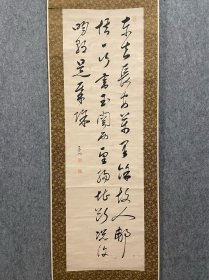 東去長安萬里餘故人那
惜一行書玉關西望腸堪斷況復
明朝是歲除